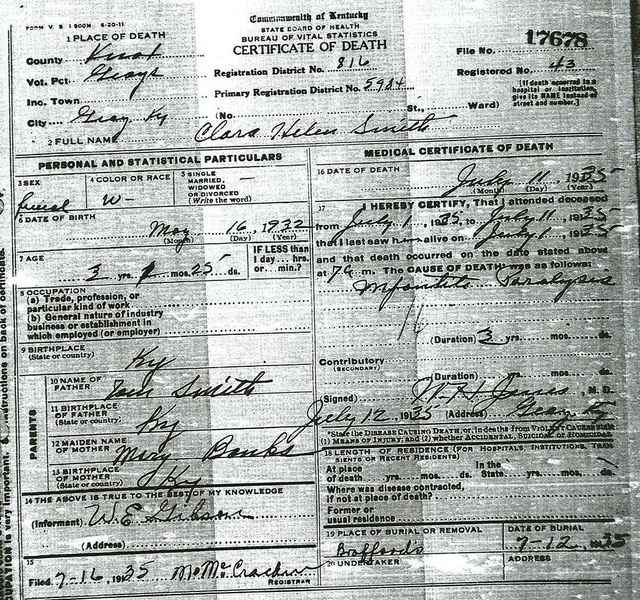 FORM V. S. 1 500M 6-20-11
Commonwealth of Kentucky
STATE BOARD OF HEALTH
BUREAU OF VITAL STATISTICS
CERTIFICATE OF DEATH
1 PLACE OF DEATH
County Knox
Vot. Pct. Grays
Inc. Town
City Gray Ky (No. St., Ward)
Registration District No. 816
Primary Registration District No. 5984
File No. 17678
Registered No. 43
[If death occurred in a hospital or institution, give its NAME instead of street and number.]
2 FULL NAME Clara Helen Smith
PERSONAL AND STATISTICAL PARTICULARS
3 SEX
4 COLOR OR RACE W
5 SINGLE, MARRIED, WIDOWED OR DIVORCED (Write the word)
6 DATE OF BIRTH
May 16, 1932
(Month) (Day) (Year)
7 AGE
3 yrs. 1 mos. 25 ds.
IF LESS than 1 day... hrs. or... min.?
8 OCCUPATION
(a) Trade, profession, or particular kind of work
(b) General nature of industry business or establishment in which employed (or employer)
9 BIRTHPLACE (State or country) Ky
PARENTS
10 NAME OF FATHER Tom Smith
11 BIRTHPLACE OF FATHER (State or country) Ky
12 MAIDEN NAME OF MOTHER Mary Banks
13 BIRTHPLACE OF MOTHER (State or country) Ky
14 THE ABOVE IS TRUE TO THE BEST OF MY KNOWLEDGE
(Informant) W. E. Gibson
(Address)
15
Filed 7-16, 1935 REGISTRAR
MEDICAL CERTIFICATE OF DEATH
16 DATE OF DEATH
July 11, 1935
(Month) (Day) (Year)
17 I HEREBY CERTIFY, That I attended deceased
from July 1, 1935, to July 11, 1935
that I last saw him alive on July 1, 1935
and that death occurred on the date stated above
at 7 a. m. The CAUSE OF DEATH was as follows:
Infantile Paralysis
16
(Duration) 3 yrs. mos. ds.
Contributory
(SECONDARY)
(Duration) yrs. mos. ds.
(Signed) M. D.
July 12, 1935 (Address) Gray Ky
*State the DISEASE CAUSING DEATH, or, in deaths from VIOLENT CAUSES state
(1) MEANS OF INJURY; and (2) whether ACCIDENTAL, SUICIDAL or HOMICIDAL
18 LENGTH OF RESIDENCE (FOR HOSPITALS, INSTITUTIONS, TRANSIENTS OR RECENT RESIDENTS)
At place of death yrs. mos. ds. In the State yrs. mos. ds.
Where was disease contracted, if not at place of death?
Former or usual residence
19 PLACE OF BURIAL OR REMOVAL
DATE OF BURIAL
7-12, 1935
20 UNDERTAKER
ADDRESS